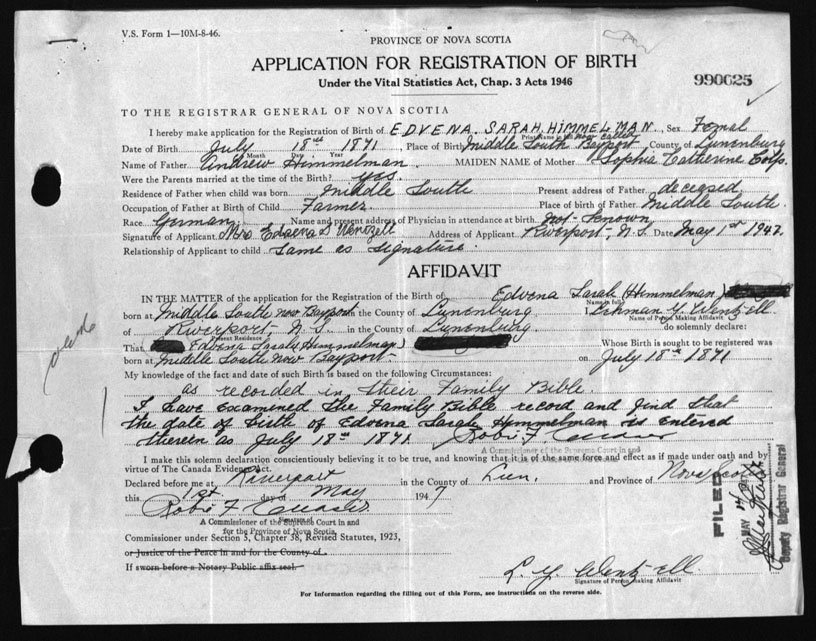 V.S. Form 1—10M-8-46.
PROVINCE OF NOVA SCOTIA
APPLICATION FOR REGISTRATION OF BIRTH
Under the Vital Statistics Act, Chap. 3 Acts 1946
990625
TO THE REGISTRAR GENERAL OF NOVA SCOTIA
I hereby make application for the Registration of Birth of EDVENA SARAH HIMMELMAN, Sex Femal
Print Name in full now called
Date of Birth July 18th 1871 Place of Birth Middle South Bayport County of Lunenburg
Month Date Year
Name of Father Andrew Himmelman. MAIDEN NAME of Mother Sophia Catherine
Were the Parents married at the time of the Birth? yes.
Residence of Father when child was born Middle South Present address of Father deceased
Occupation of Father at Birth of Child Farmer Place of birth of Father Middle South.
Race German Name and present address of Physician in attendance at birth not known
Signature of Applicant Mrs Edvena S Wentzell Address of Applicant Riverport, N.S. Date May 1st 1947.
Relationship of Applicant to child Same as signature.
AFFIDAVIT
IN THE MATTER of the application for the Registration of the Birth of Edvena Sarah (Himmelman)
Name in full
born at Middle South now Bayport in the County of Lunenburg I, Y. Wentzell
Name of Person Making Affidavit
of Riverport, N.S. in the County of Lunenburg. do solemnly declare:
Present Residence
That Edvena Sarah (Himmelman) Whose Birth is sought to be registered was
born at Middle South Now Bayport on July 18th 1871
My knowledge of the fact and date of such Birth is based on the following Circumstances:
as recorded in their Family Bible
I have examined the Family Bible record and find that
the date of birth of Edvena Sarah Himmelman is entered
therein as July 18th 1871. Robt F
A Commissioner of the Supreme Court in and
I make this solemn declaration conscientiously believing it to be true, and knowing it is of the same force and effect as if made under oath and by
virtue of The Canada Evidence Act.
Declared before me at Riverport in the County of Lun. and Province of Nova Scotia
this 1st. day of May 1947
Robt F
Signature of
A Commissioner of the Supreme Court in and
for the Province of Nova Scotia.
Commissioner under Section 3, Chapter 38, Revised Statutes, 1923,
or Justice of the Peace in and for the County of
If sworn before a Notary Public affix seal.
L. Y. Wentzell
Signature of Person making Affidavit
For Information regarding the filling out of this Form, see instructions on the reverse side.
FILED
MAY
Deputy Registrar General